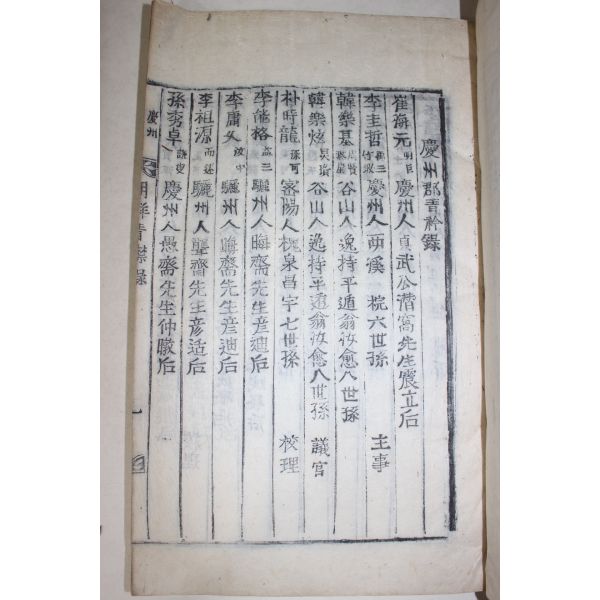 慶州郡青衿錄
崔海元 慶州人貞武公潛窩先生震立后
李圭哲 慶州人西溪 浣六世孫 主事
韓樂基 谷山人逸持平遁翁汝愈八世孫
韓樂炫 谷山人逸持平遁翁汝愈八世孫 議官
朴時龍 密陽人槐泉昌宇七世孫 校理
李能格 驪州人晦齋先生彦迪后
李庸久 驪州人晦齋先生彦迪后
李祖源 驪州人聾齋先生彦适后
孫秀卓 慶州人愚齋先生仲暾后
慶州
青襟錄
一